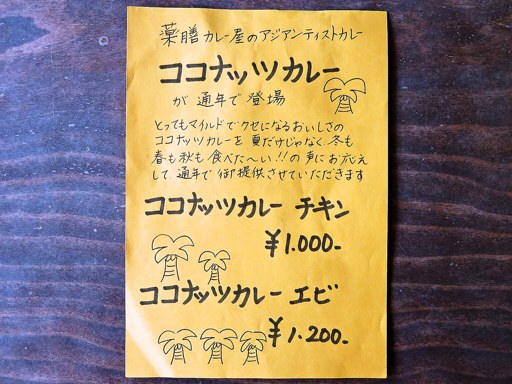 薬膳カレー屋のアジアンテイストカレー
ココナッツカレー
が通年で登場
とってもマイルドでクセになるおいしさの
ココナッツカレーを夏だけじゃなく、冬も
春も秋も食べた〜い!!の声にお応え
して、通年で御提供させていただきます
ココナッツカレー チキン
¥1.000-
ココナッツカレー エビ
¥1.200-